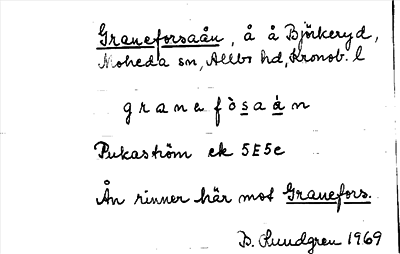 Graneforsaån, å å Björkeryd,
Moheda sn, Allbo hd, Kronob. l
g r a n e f ò s a á n
Pukaström ek 5E5c
Ån rinner här mot Granefors.
B. Lundgren 1969